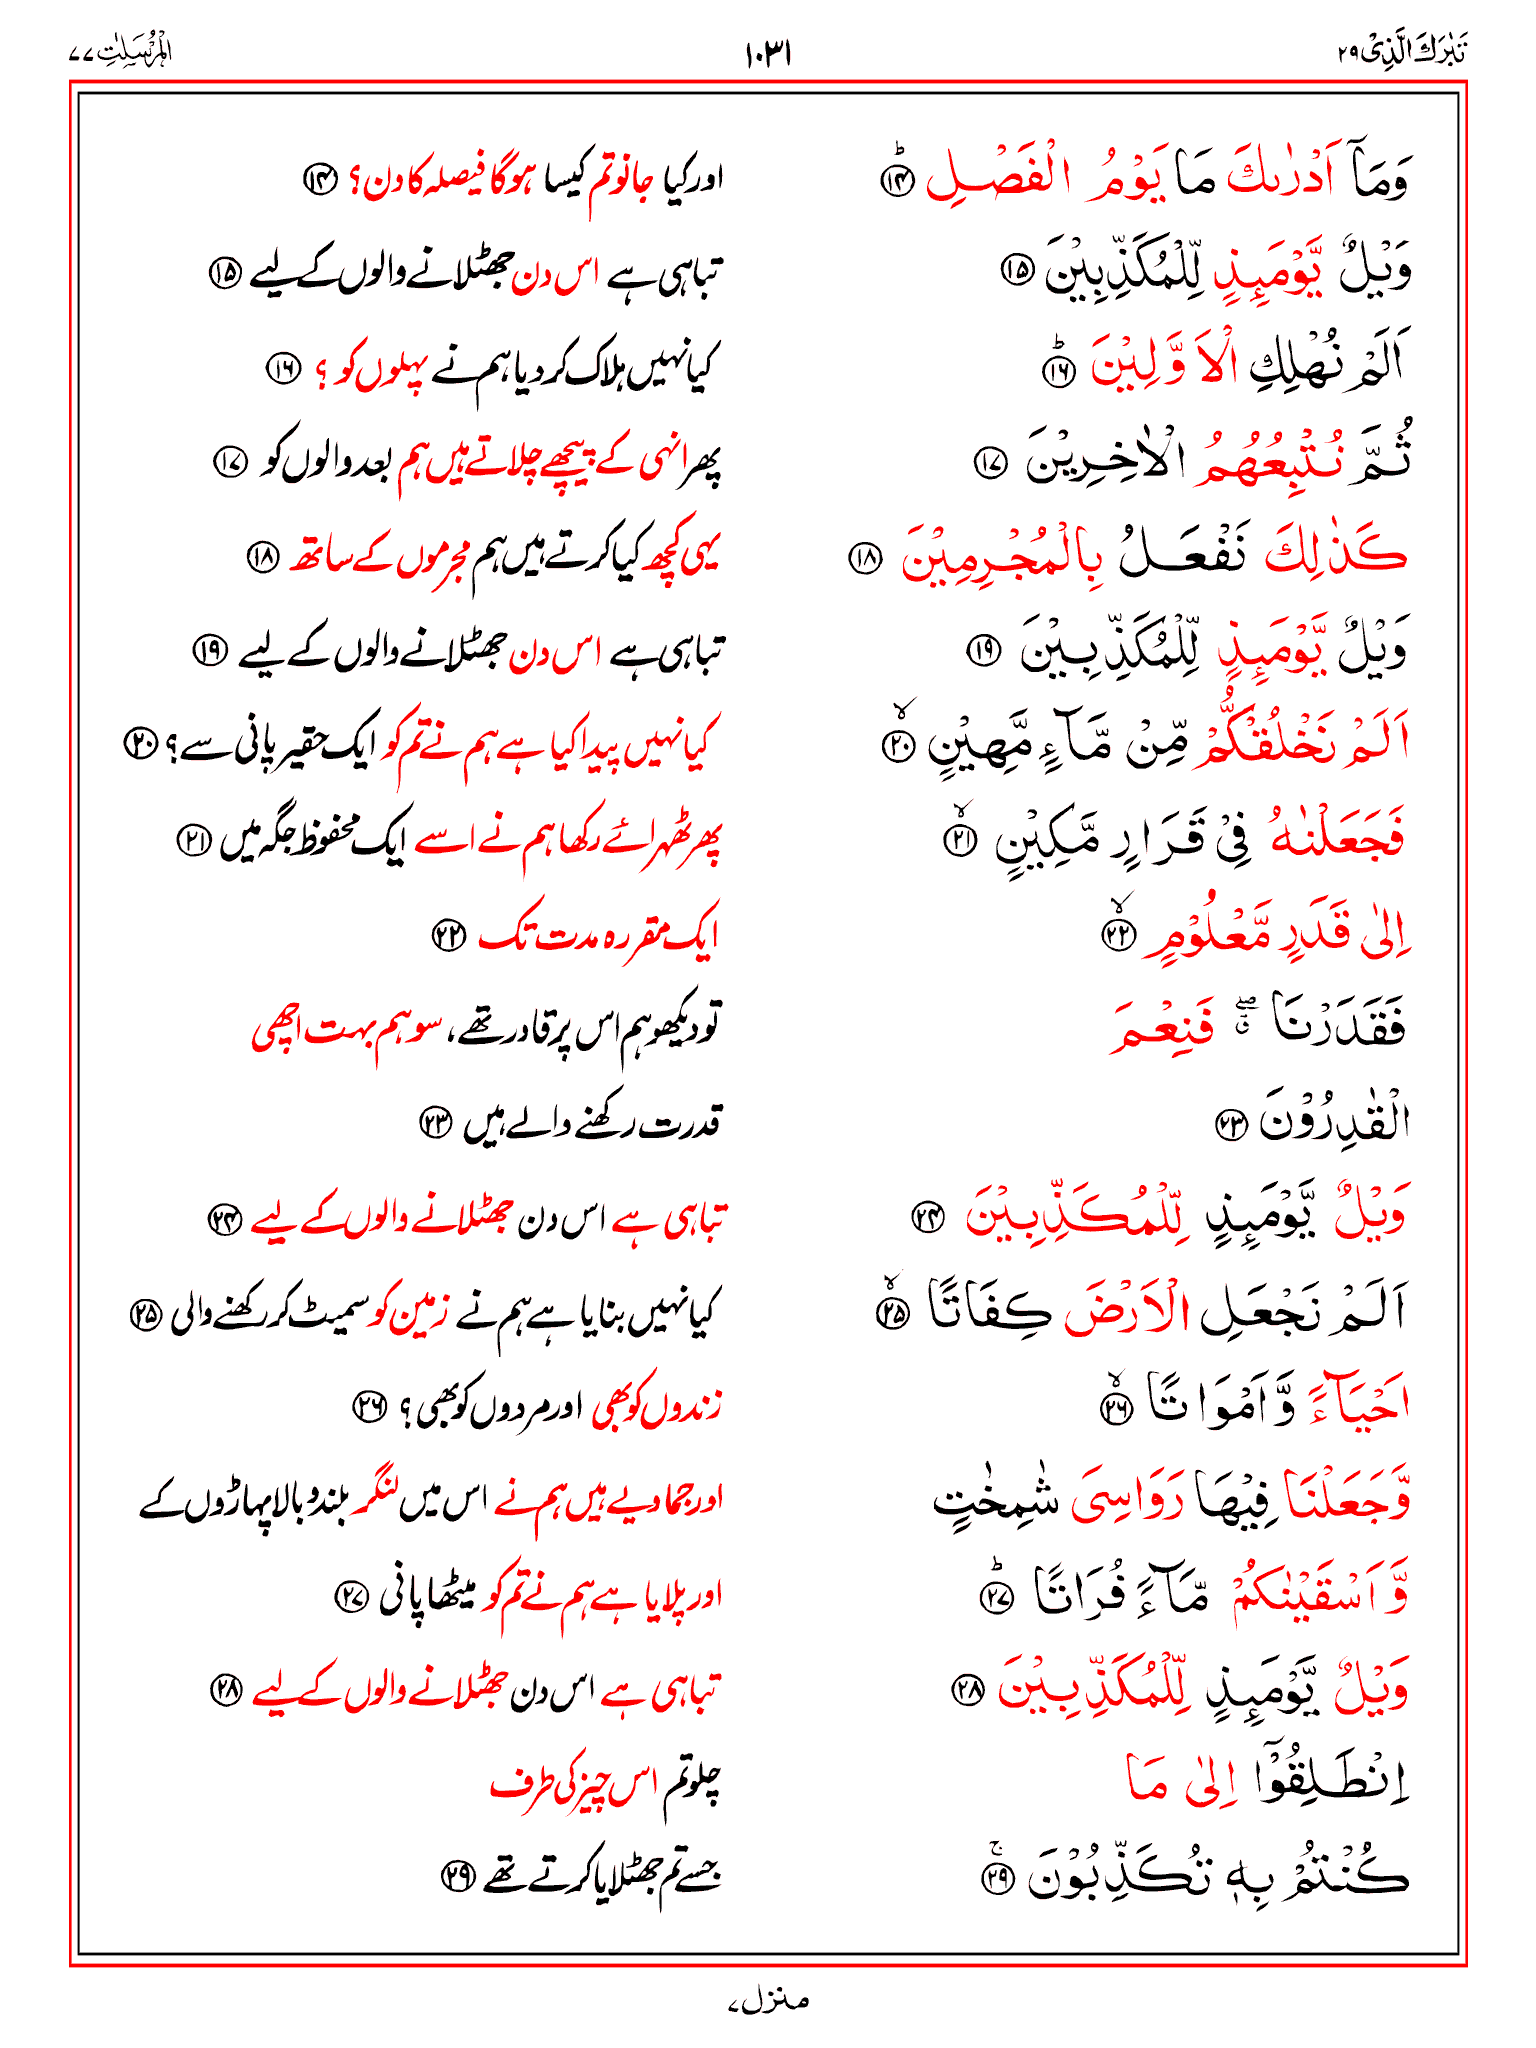 تَبٰرَكَ الَّذِىْ ٢٩
١٠٣١
اَلْمُرْسَلٰتِ ٧٧
وَمَآ اَدْرٰىكَ مَا يَوْمُ الْفَصْلِ ؕ ۱۴
اور کیا جانو تم کیسا ہوگا فیصلہ کا دن؟ ۱۴
وَيْلٌ يَّوْمَئِذٍ لِّلْمُكَذِّبِيْنَ ۱۵
تباہی ہے اس دن جھٹلانے والوں کے لیے ۱۵
اَلَمْ نُهْلِكِ الْاَوَّلِيْنَ ؕ ۱۶
کیا نہیں ہلاک کر دیا ہم نے پہلوں کو ؟ ۱۶
ثُمَّ نُتْبِعُهُمُ الْاٰخِرِيْنَ ۱۷
پھر انہی کے پیچھے چلاتے ہیں ہم بعد والوں کو ۱۷
كَذٰلِكَ نَفْعَلُ بِالْمُجْرِمِيْنَ ۱۸
یہی کچھ کیا کرتے ہیں ہم مجرموں کے ساتھ ۱۸
وَيْلٌ يَّوْمَئِذٍ لِّلْمُكَذِّبِيْنَ ۱۹
تباہی ہے اس دن جھٹلانے والوں کے لیے ۱۹
اَلَمْ نَخْلُقْكُّمْ مِّنْ مَّآءٍ مَّهِيْنٍ ۙ ۲۰
کیا نہیں پیدا کیا ہے ہم نے تم کو ایک حقیر پانی سے؟ ۲۰
فَجَعَلْنٰهُ فِىْ قَرَارٍ مَّكِيْنٍ ۙ ۲۱
پھر ٹھہرائے رکھا ہم نے اسے ایک محفوظ جگہ میں ۲۱
اِلٰى قَدَرٍ مَّعْلُوْمٍ ۙ ۲۲
ایک مقررہ مدت تک ۲۲
فَقَدَرْنَا ۖۗ فَنِعْمَ
تو دیکھو ہم اس پر قادر تھے، سو ہم بہت اچھی
الْقٰدِرُوْنَ ۲۳
قدرت رکھنے والے ہیں ۲۳
وَيْلٌ يَّوْمَئِذٍ لِّلْمُكَذِّبِيْنَ ۲۴
تباہی ہے اس دن جھٹلانے والوں کے لیے ۲۴
اَلَمْ نَجْعَلِ الْاَرْضَ كِفَاتًا ۙ ۲۵
کیا نہیں بنایا ہے ہم نے زمین کو سمیٹ کر رکھنے والی ۲۵
اَحْيَآءً وَّاَمْوَاتًا ۙ ۲۶
زندوں کو بھی اور مردوں کو بھی؟ ۲۶
وَّجَعَلْنَا فِيْهَا رَوَاسِىَ شٰمِخٰتٍ
اور جما دیے ہیں ہم نے اس میں لنگر بلند و بالا پہاڑوں کے
وَّاَسْقَيْنٰكُمْ مَّآءً فُرَاتًا ؕ ۲۷
اور پلایا ہے ہم نے تم کو میٹھا پانی ۲۷
وَيْلٌ يَّوْمَئِذٍ لِّلْمُكَذِّبِيْنَ ۲۸
تباہی ہے اس دن جھٹلانے والوں کے لیے ۲۸
اِنْطَلِقُوْٓا اِلٰى مَا
چلو تم اس چیز کی طرف
كُنْتُمْ بِهٖ تُكَذِّبُوْنَ ۚ ۲۹
جسے تم جھٹلایا کرتے تھے ۲۹
منزل ۷